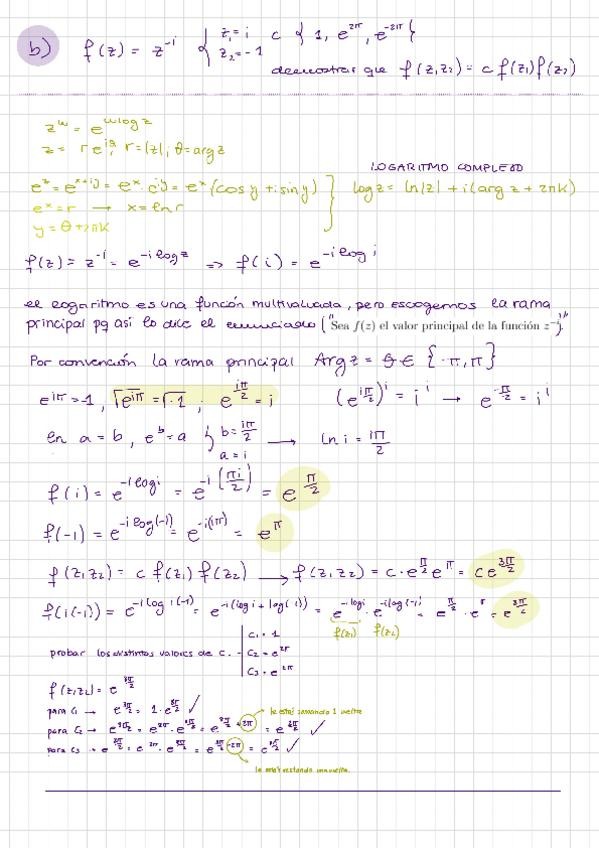 b) f(z) = z^-i { z₁ = i z₂ = -1 c { 1, e^2π, e^-2π }
demostrar que f(z₁z₂) = c f(z₁) f(z₂)
z^w = e^wlogz
z = r e^iθ, r = |z|, θ = arg z
LOGARITMO COMPLEJO
e^z = e^x+iy = e^x · e^iy = e^x (cos y + i sin y) log z = ln|z| + i(arg z + 2πk)
e^x = r → x = ln r
y = θ + 2πk
f(z) = z^-i = e^-i log z ⇒ f(i) = e^-i log i
el logaritmo es una función multivaluada, pero escogemos la rama
principal pq así lo dice el enunciado ("Sea f(z) el valor principal de la función z^-i").
Por convención la rama principal Arg z = θ ∈ {-π, π}
e^iπ = -1, √e^iπ = √-1 ; e^iπ/2 = i (e^iπ/2)^i = i^i → e^-π/2 = i^i
ln a = b, e^b = a } b = iπ/2 a = i → ln i = iπ/2
f(i) = e^-i log i = e^-i (πi/2) = e^π/2
f(-1) = e^-i log(-1) = e^-i(iπ) = e^π
f(z₁z₂) = c f(z₁) f(z₂) → f(z₁z₂) = c · e^π/2 e^π = c e^3π/2
f(i(-1)) = e^-i log i(-1) = e^-i(log i + log(-1)) = e^-i log i · e^-i log(-1) = e^π/2 · e^π = e^3π/2
f(z₁) f(z₂)
probar los distintos valores de c. | c₁ = 1
c₂ = e^2π
c₃ = e^2π
f(z₁z₂) = e^3π/2
para c₁ → e^3π/2 = 1 · e^3π/2 ✓
le estás sumando 1 vuelta
para c₂ → e^3π/2 = e^2π · e^3π/2 = e^3π/2 +2π = e^3π/2 ✓
para c₃ → e^3π/2 = e^-2π · e^3π/2 = e^3π/2 -2π = e^3π/2 ✓
le estás restando una vuelta.